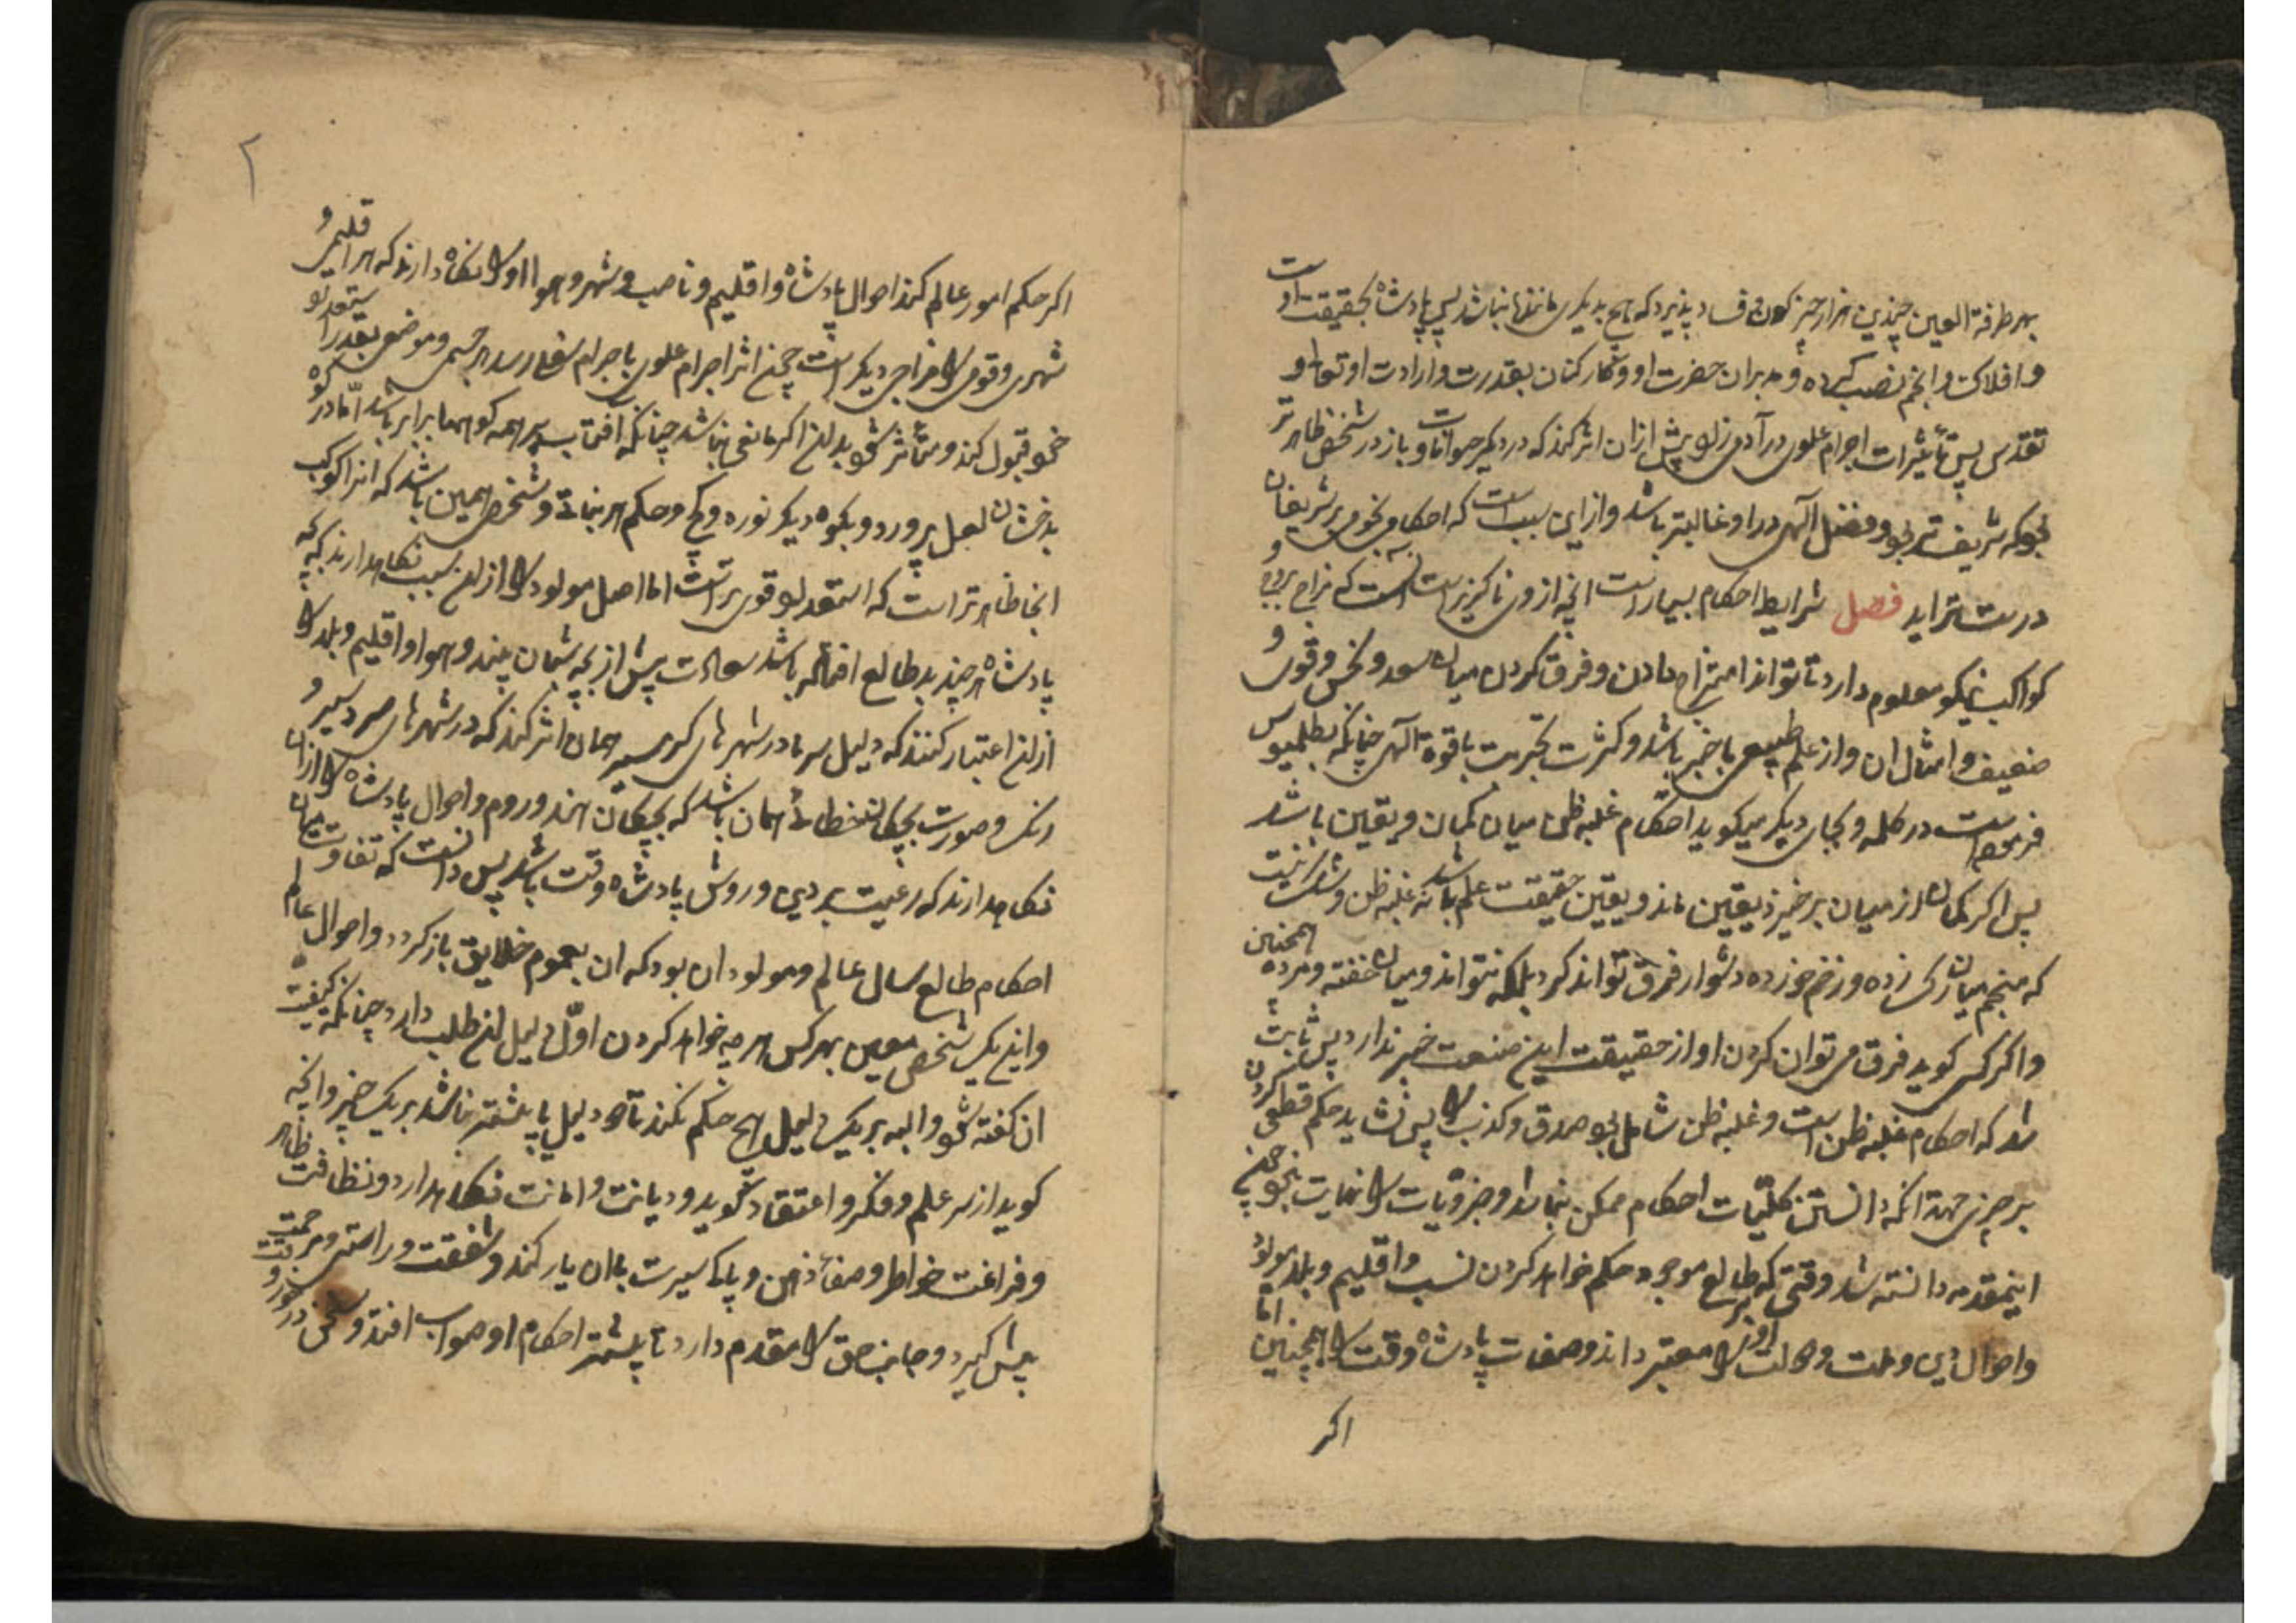 بهر طرفة العین چندین هزار چیز کون و فساد پذیرد که هیچ بدیکری مانند نباشد پس پادشاه بحقیقت اوست
و افلاک و انجم نصب کرده و مدبران حضرت او و کارکنان بقدرت و ارادت او تعالی و
تقدس پس تأثیرات اجرام علوی در آدمی زاد پیش ازان اثر کند که در دیکر حیوانات و باز در شخصی ظاهر تر
بود که شریف تر بود و فضل آلهی در او غالبتر باشد و از این سبب است که احکام نجومی بر شریفان
درست تر اید فصل شرایط احکام بسیار است انچه ازوی ناکزیر است آنست که مزاج بروج و
کواکب نیکو معلوم دارد تا تواند امتزاج دادن و فرق کردن میان سعد و نحس و قوی و
ضعیف و امثال ان و از علم طبیعی باخبر باشد و کثرت تجربت با قوة آلهی چنانکه بطلمیوس
فرموده است در کلمه و بجای دیکر میکوید احکام غلبه ظن میان کمان و یقین باشد
پس اکر کمان از میان برخیزد یقین ماند و یقین حقیقت علم باشد نه غلبه ظن و شک نیست
که منجم میان رک زده و زخم خورده دشوار فرق تواند کرد بلکه نتواند و میان خفته و مرده همچنین
و اکر کسی کوید فرق می توان کردن او از حقیقت این صنعت خبر ندارد پس ثابت
شد که احکام غلبه ظن است و غلبه ظن شامل بود صدق و کذب را پس نشاید حکم قطعی کردن
بر چیزی جهة آنکه دانستن کلیّات احکام ممکن نباشد و جزویّات را نهایت نبود چون
اینمقدمه دانسته شد وقتی که بر طالع موجود حکم خواهد کردن نسب و اقلیم و بلد مولود
و احوال دین و ملت و دولت او را معتبر داند و صفات پادشاه وقت را همچنین اما
اکر
۲
اکر حکم امور عالم کند احوال پادشاه و اقلیم و ناصب و شهر و هوا اولا نکاه دارند که هر اقلیمی و
شهری و قومی را مزاجی دیکر است چون اثر اجرام علوی باجرام سفلی رسد هر جسمی و موضعی بقدر استعداد
خود قبول کند و متأثر شود بدان اکر مانعی نباشد چنانکه افتاب بر همه کوهها برابر باشد امّا در کوه
بدخشان لعل پرورد و بکوه دیکر نوره و کچ و حکم هر نباتی و شخص همین باشد که اثر کواکب
انجا ظاهرتر است که استعداد قوی تر است اما اصل مولود را ازان سبب نکاهدارند که بچه
پادشاه هر چند بد طالع افتاده باشد سعادت پیش از بچه شبان بیند و هوا و اقلیم و بلد را
ازان اعتبار کنند که دلیل سرما در شهرهای کرمسیر همان اثر کند که در شهرهای سردسیر و
رنک و صورت بچکان خطائی همان باشد که بچکان هند و روم و احوال پادشاه را ازان
نکاهدارند که رعیت بر دین و روش پادشاه وقت باشد پس دانست که تفاوت میان
احکام طالع سال عالم و مولود ان بود که ان بعموم خلایق باز کردد و احوال عالم
و این یک شخص معین بهر کس هر چه خواهد کردن اوّل دلیل ان طلب دارد چنانکه کیفیت
ان کفته شود و البه بر یک دلیل هیچ حکم نکند تا دو دلیل یا بیشتر نباشد بر یک چیز وانچه
کوید از سر علم و فکر و اعتقاد کوید و دیانت و امانت نکاهدارد و نظافت ظاهر
و فراغت خواطر و صفاء ذهن و پاک سیرت باان یار کند و شفقت و راستی و مرحمت
پیش کیرد و جانب حق را مقدم دارد تا بیشتر احکام او صواب افتد و سخن درخور